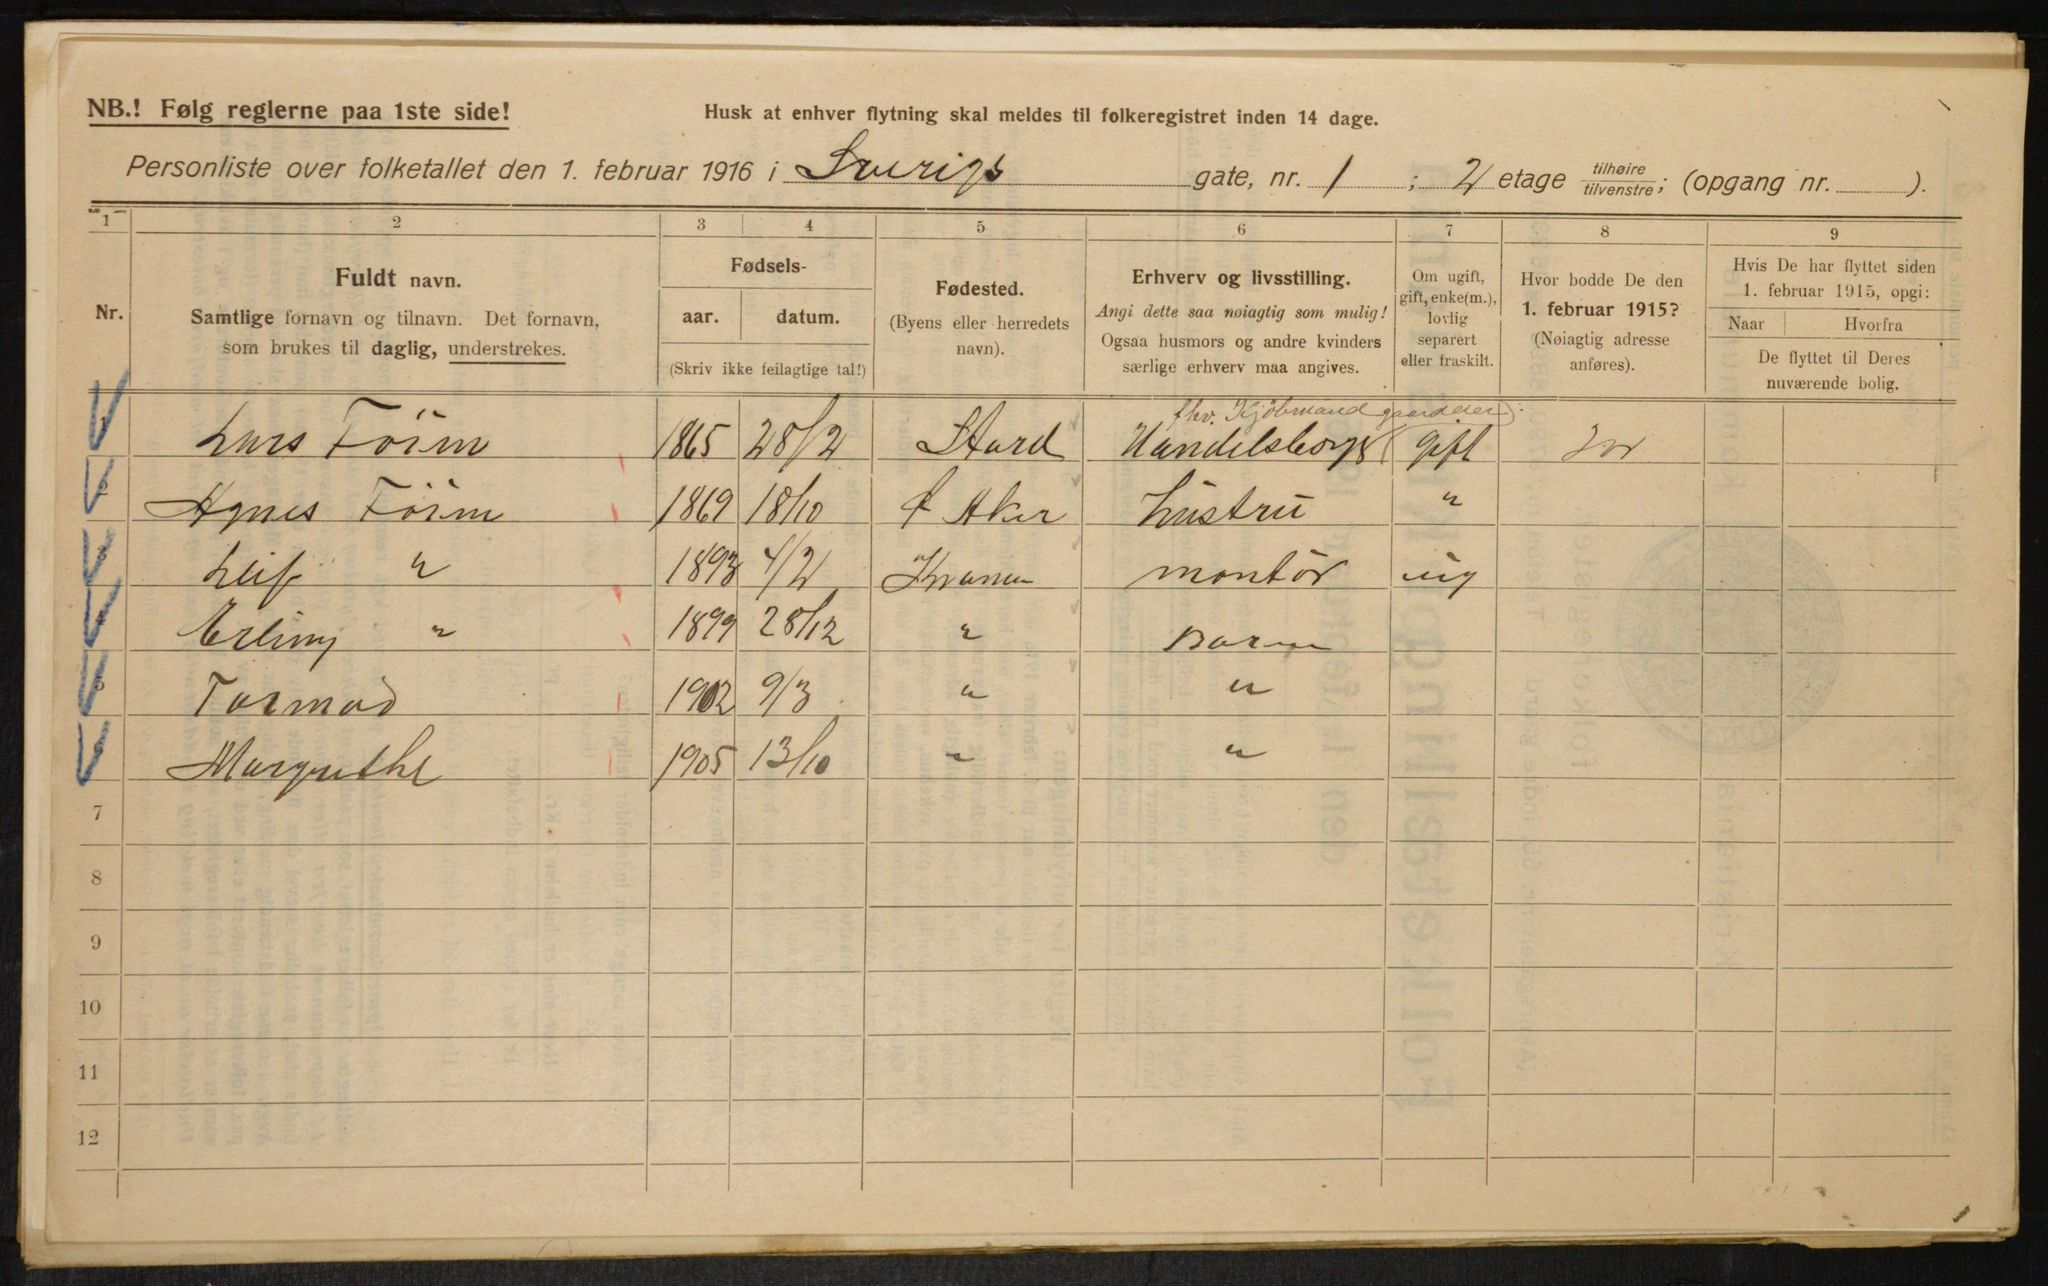 NB.! Følg reglerne paa 1ste side!
Husk at enhver flytning skal meldes til folkeregistret inden 14 dage.
Personliste over folketallet den 1. februar 1916 i Sverigs gate, nr. 1 ; 2 etage tilhøire tilvenstre; (opgang nr. ).
1 2 3 4 5 6 7 8 9
Nr.
Fuldt navn.
Samtlige fornavn og tilnavn. Det fornavn,
som brukes til daglig, understrekes.
Fødsels-
aar. datum.
(Skriv ikke feilagtige tal!)
Fødested.
(Byens eller herredets
navn).
Erhverv og livsstilling.
Angi dette saa nøiagtig som mulig!
Ogsaa husmors og andre kvinders
særlige erhverv maa angives.
Om ugift,
gift, enke(m.),
lovlig
separert
eller fraskilt.
Hvor bodde De den
1. februar 1915?
(Nøiagtig adresse
anføres).
Hvis De har flyttet siden
1. februar 1915, opgi:
Naar Hvorfra
De flyttet til Deres
nuværende bolig.
fhv. Kjøbmand gaardeier
Lars Föim 1865 28/2 Stord Handelsborg gift
Agnes Föim 1869 18/10 Aker Hustru "
Leif " 1893 4/2 montör ug
Erling " 1899 28/12 " Barn
Tormod 1902 9/3 " "
Margrethe 1905 13/10 " "
7
8
9
10
11
12